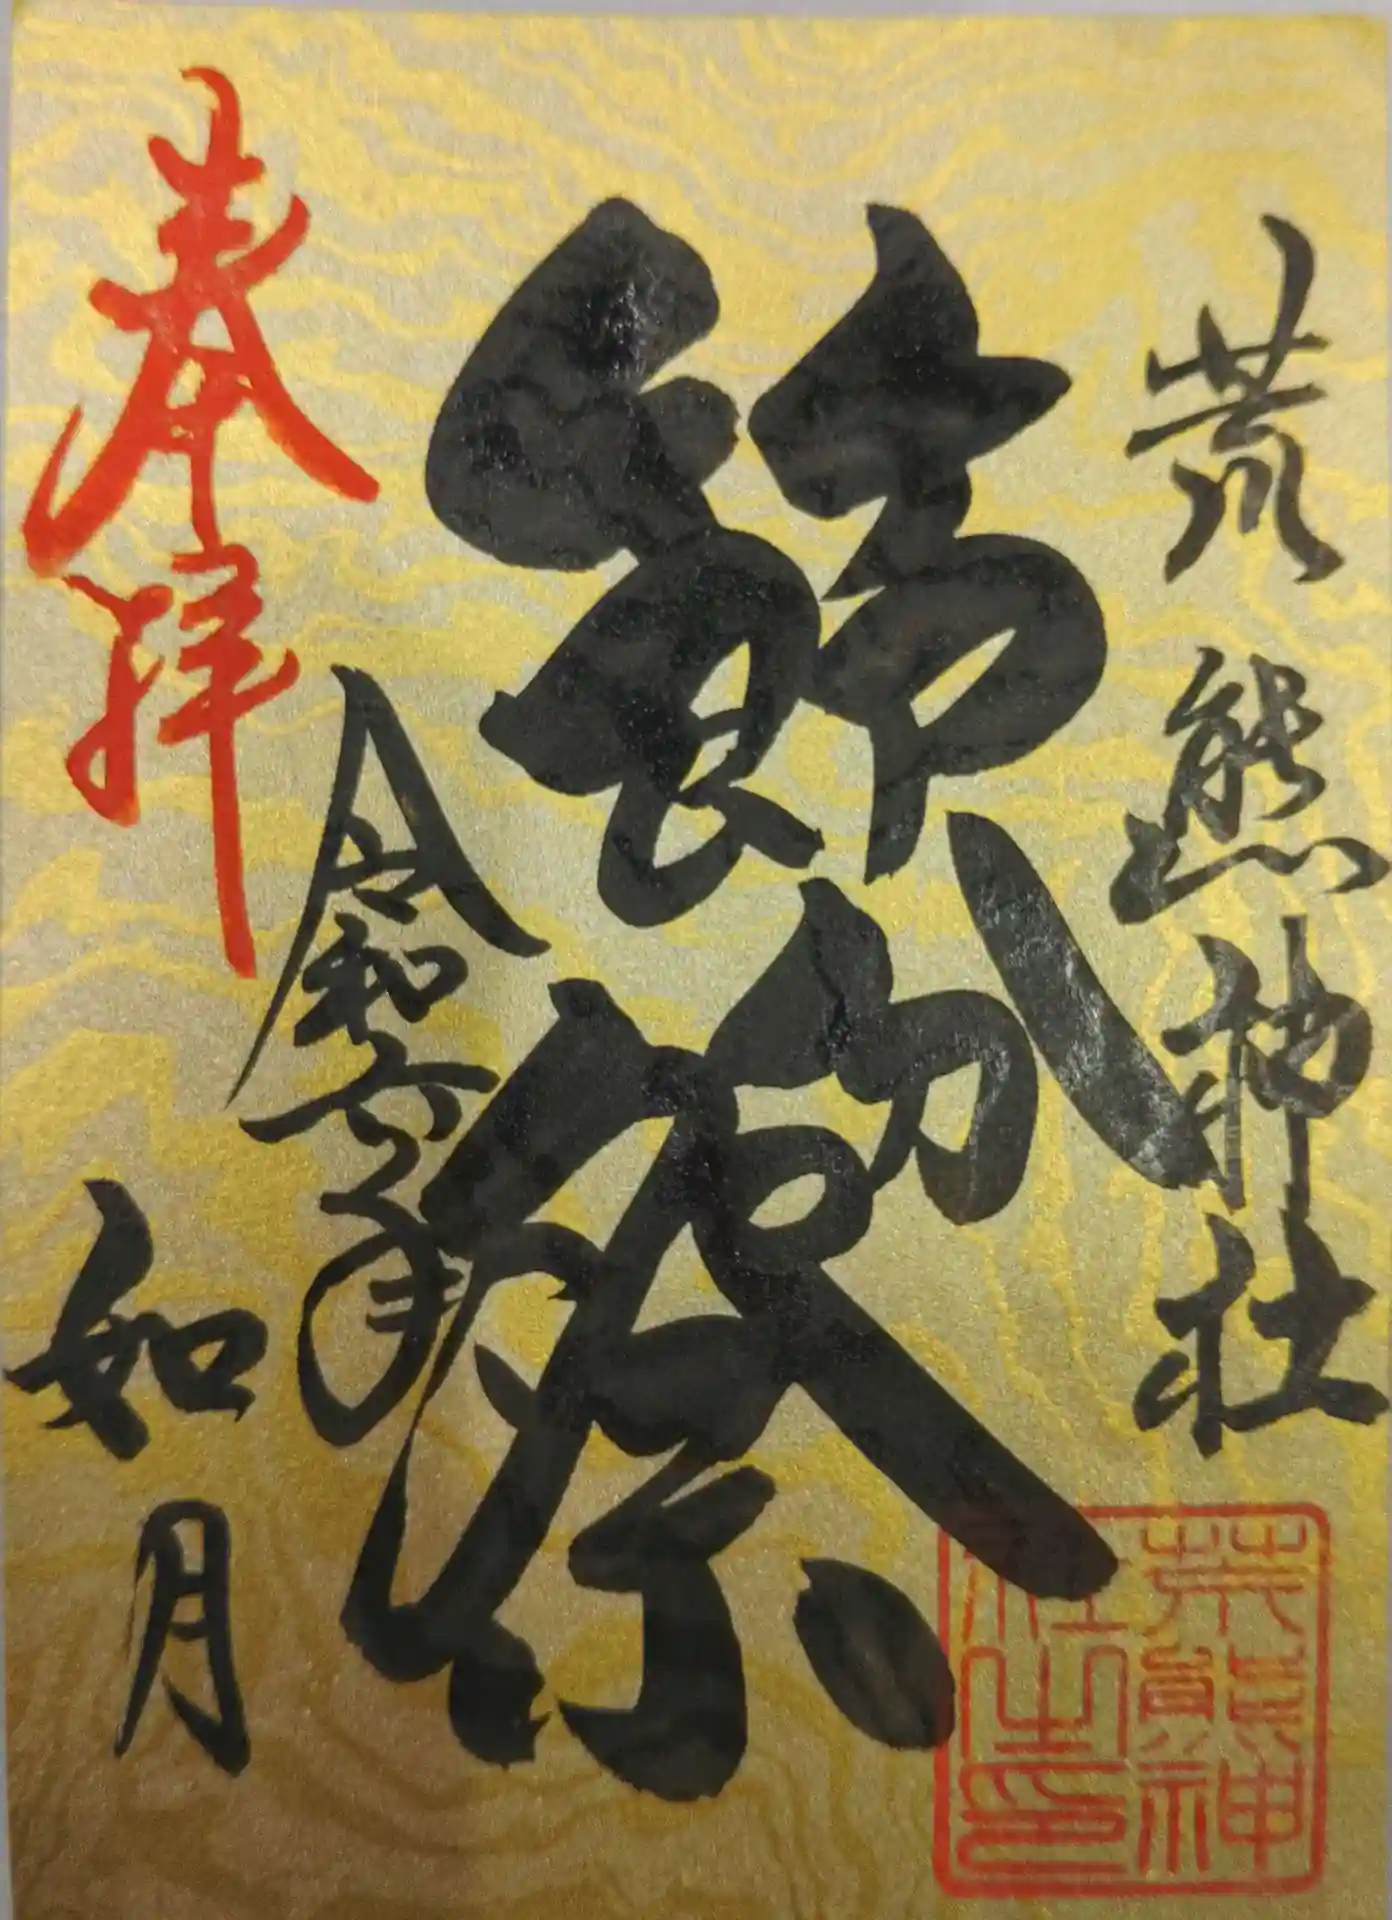 荒熊神社
節分祭
令和六年
如月
奉拝
荒熊神
社之印